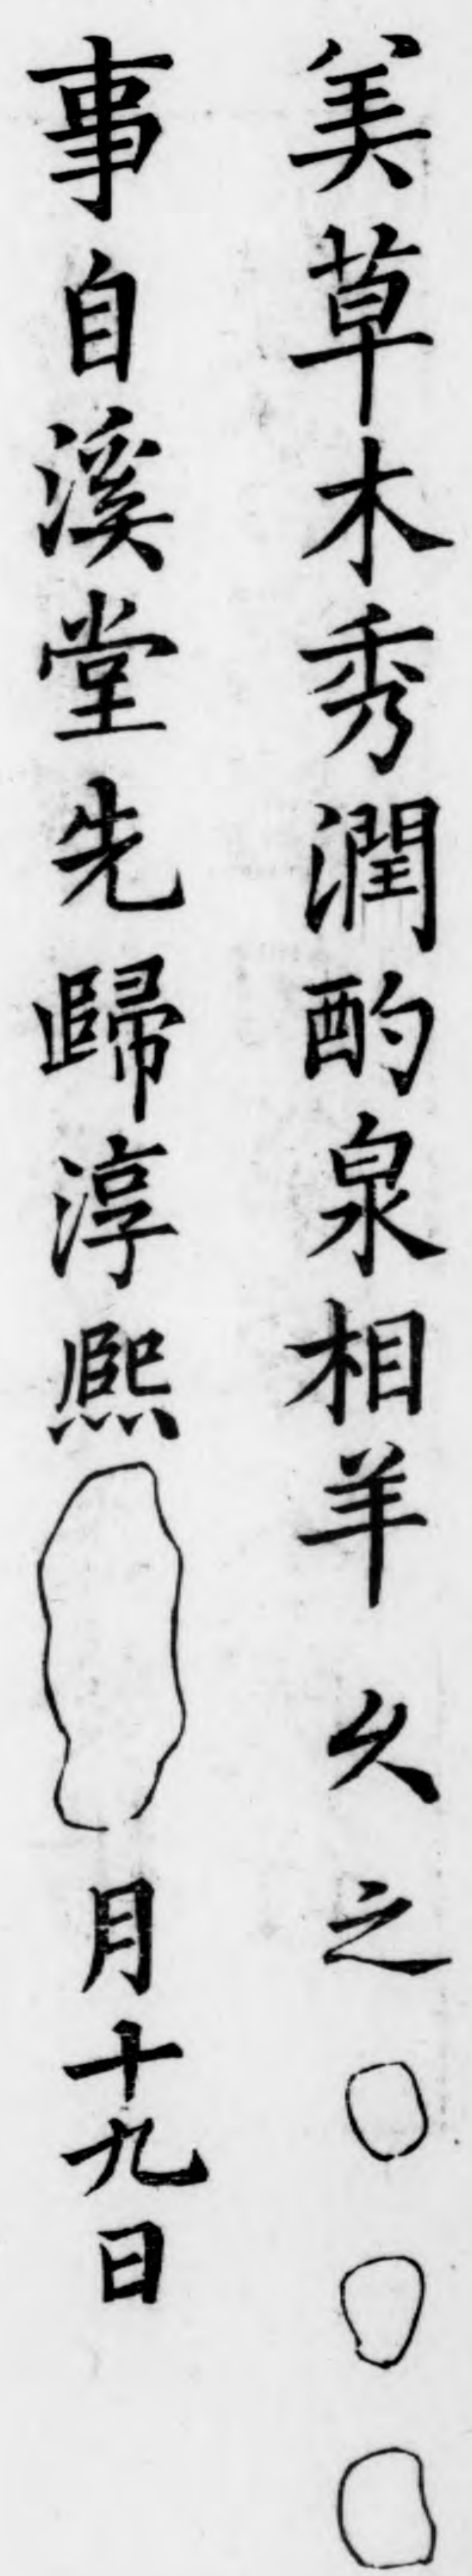 美草木秀潤酌泉相羊久之〇〇〇
事自溪堂先歸淳熙月十九日